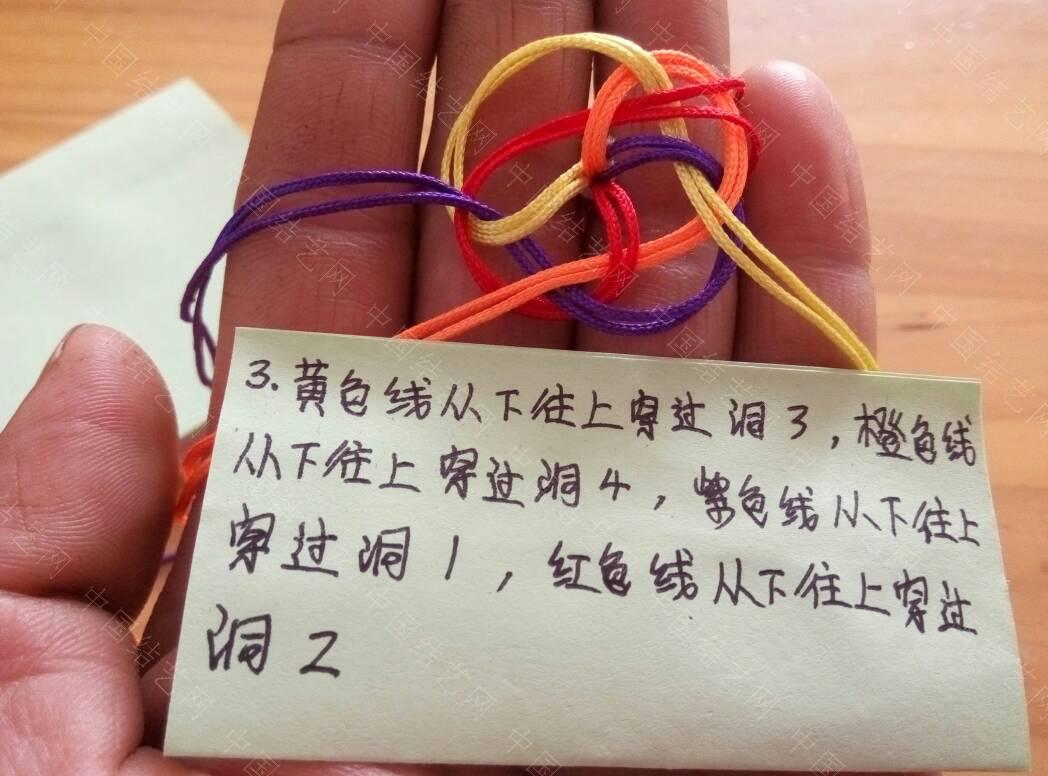 3.黄色线从下往上穿过洞3，橙色线
从下往上穿过洞4，紫色线从下往上
穿过洞1，红色线从下往上穿过
洞2
中国结艺网